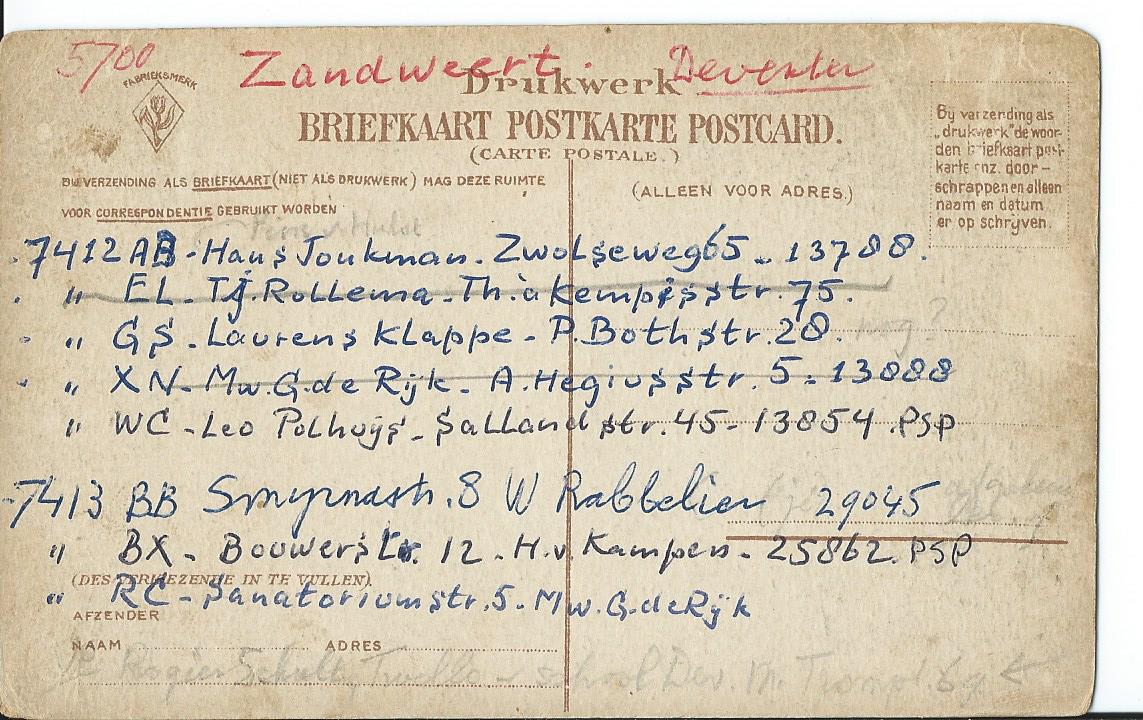 5700 Zandweert. Deventer
FABRIEKSMERK
Drukwerk
BRIEFKAART POSTKARTE POSTCARD.
(CARTE POSTALE.)
BIJ VERZENDING ALS BRIEFKAART (NIET ALS DRUKWERK) MAG DEZE RUIMTE
VOOR CORRESPONDENTIE GEBRUIKT WORDEN
(ALLEEN VOOR ADRES.)
Bij verzending als
„drukwerk" de woor-
den briefkaart post-
karte enz. door-
schrappen en alleen
naam en datum
er op schrijven.
v. Hulst
7412 AB - Hans Jonkman - Zwolseweg 65 - 13788.
" EL - Tj. Rollema - Th. à Kempisstr. 75.
" GS - Laurens Klappe - P. Bothstr. 28. nog?
" XN - Mw. G. de Rijk - A. Hegiusstr. 5 - 13888
" WC - Leo Polhuÿs - Sallandstr. 45 - 13854 . PSP
7413 BB Smyrnastr. 8 W Rabbelier 29045
" BX - Bouwerstr. 12 - H. v. Kampen - 25862. PSP
(DES VERKIEZENDE IN TE VULLEN)
" RC - Sanatoriumstr. 5 - Mw. G. de Rijk
AFZENDER
NAAM ADRES
Rogier Schulte, school Dev. M. Tromp 69 ←